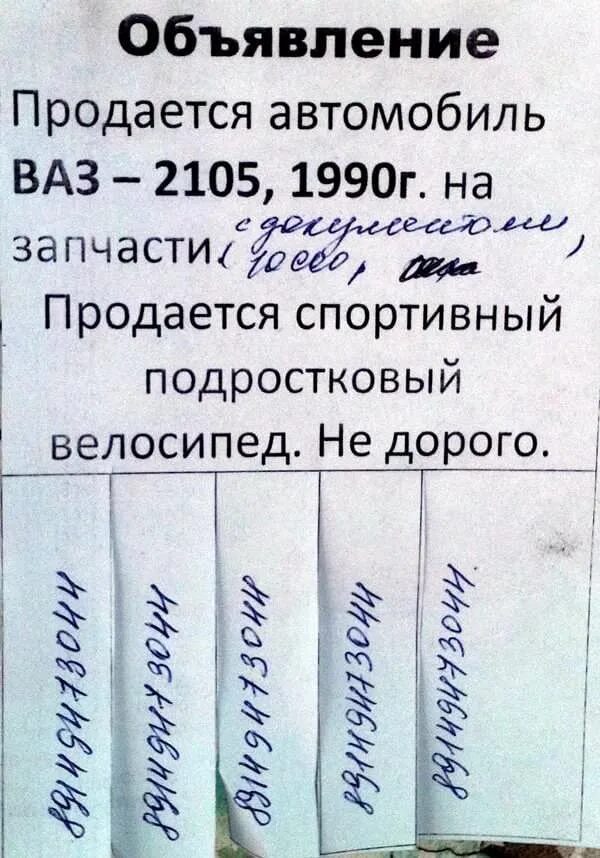 Объявление
Продается автомобиль
ВАЗ – 2105, 1990г. на
с документами,
запчасти
Продается спортивный
подростковый
велосипед. Не дорого.
89149473044
89149473044
89149473044
89149473044
89149473044